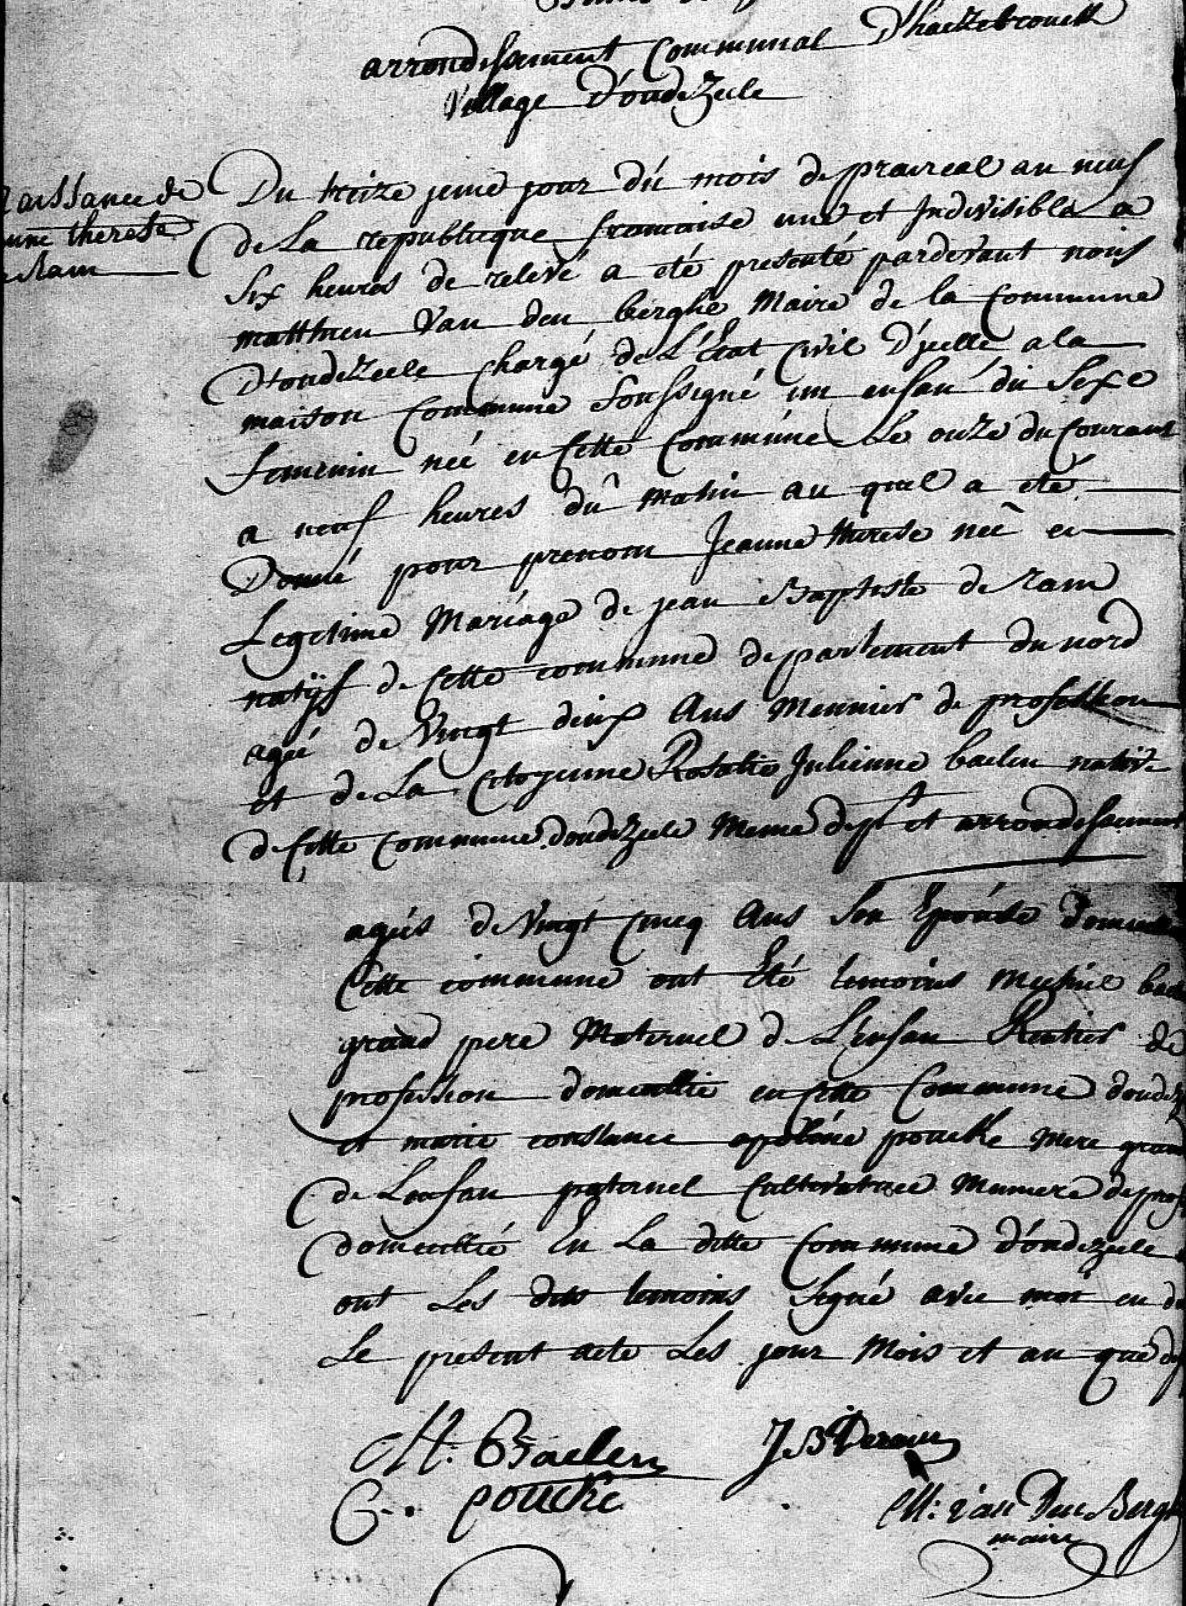 arrondissement Communal D'haezebrouck
Village D'oudezeele
Naissance de
Jeanne therese
de Ram
Du treize jeme jour du mois de praireal an neuf
de La republicque francoise une et Indivisible a
Six heures de relevé a eté presenté pardevant nous
matthieu Van den berghe Maire de la Commune
D'oudezeele Chargé de L'Etat Civil D'jcelle a la
maison Commune Soussigné un enfan du Sexe
femenin neé en Cette Commune Le onze du Courant
a neuf heures du matin au quel a eté
Donné pour prenom Jeanne therese neé en
Legetime Mariage de jean Baptiste de ram
natijf de Cette commune departement du nord
ageé de Vingt deux Ans Meunier de profession
et de La Citoyenne Rosalie Julienne baelen native
de Cette Commune doudezeele Meme dept et arrondissement
ageés de Vingt Cincq Ans Son Epouse
Cette commune ont Eté temoins Michiel
grand pere Maternel de L'enfan Rentier de
profession domecillie en Cette Commune
et marie constance apoloine poucke Mere
de Lenfan paternel Cultivatrice Muniere de
domecillié En La ditte Commune D'oudezeele
ont Les dits temoins Segné avec moi en
Le present acte Les jour Mois et an que
M. Baelen J B Deram
C. poucke
M: van Den Bergh
maire